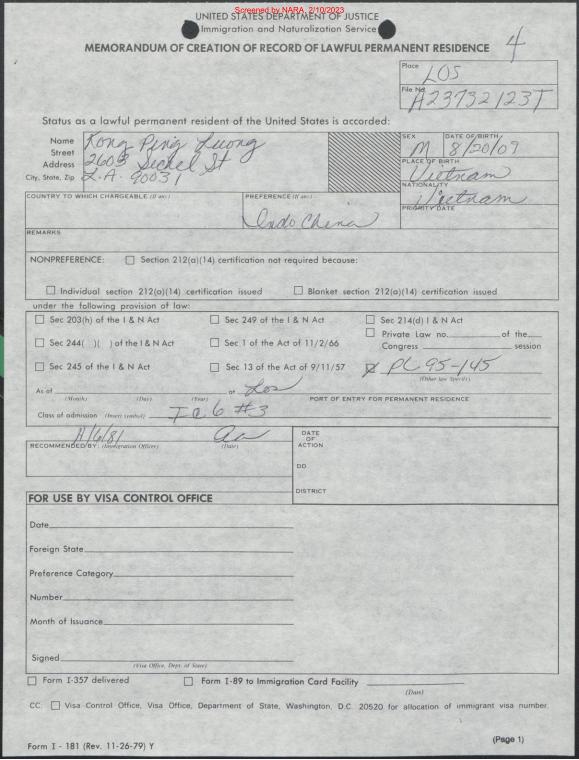 Screened by NARA, 2/10/2023
UNITED STATES DEPARTMENT OF JUSTICE
Immigration and Naturalization Service
MEMORANDUM OF CREATION OF RECORD OF LAWFUL PERMANENT RESIDENCE
4
Place
LOS
File No.
A23732123T
Status as a lawful permanent resident of the United States is accorded:
Name Kong Ping Luong
Street Address 2603 Sichel St
City, State, Zip L.A. 90031
SEX M
DATE OF BIRTH 8/20/07
PLACE OF BIRTH
Vietnam
NATIONALITY
Vietnam
COUNTRY TO WHICH CHARGEABLE (If any)
PREFERENCE (If any)
Indo China
PRIORITY DATE
REMARKS
NONPREFERENCE: Section 212(a)(14) certification not required because:
Individual section 212(a)(14) certification issued Blanket section 212(a)(14) certification issued
under the following provision of law:
Sec 203(h) of the I & N Act Sec 249 of the I & N Act Sec 214(d) I & N Act
Private Law no. of the
Sec 244( )( ) of the I & N Act Sec 1 of the Act of 11/2/66 Congress session
Sec 245 of the I & N Act Sec 13 of the Act of 9/11/57 PL 95-145
(Other law Specify)
As of at Los
(Month) (Day) (Year) PORT OF ENTRY FOR PERMANENT RESIDENCE
Class of admission (Insert symbol) IC6 #3
RECOMMENDED BY: (Immigration Officer) (Date)
DATE OF ACTION
DD
DISTRICT
FOR USE BY VISA CONTROL OFFICE
Date
Foreign State
Preference Category
Number
Month of Issuance
Signed
(Visa Office, Dept. of State)
Form I-357 delivered Form I-89 to Immigration Card Facility
(Date)
CC. Visa Control Office, Visa Office, Department of State, Washington, D.C. 20520 for allocation of immigrant visa number.
Form I - 181 (Rev. 11-26-79) Y (Page 1)